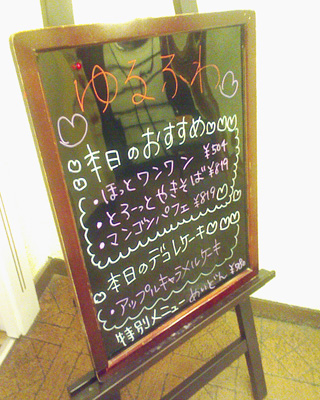 ゆるふわ
本日のおすすめ
・ほっとワンワン ¥504
・とろーっとやきそば ¥819
・マンゴンパフェ ¥819
本日のデコレケーキ
・アップルキャラメルケーキ
特別メニュー